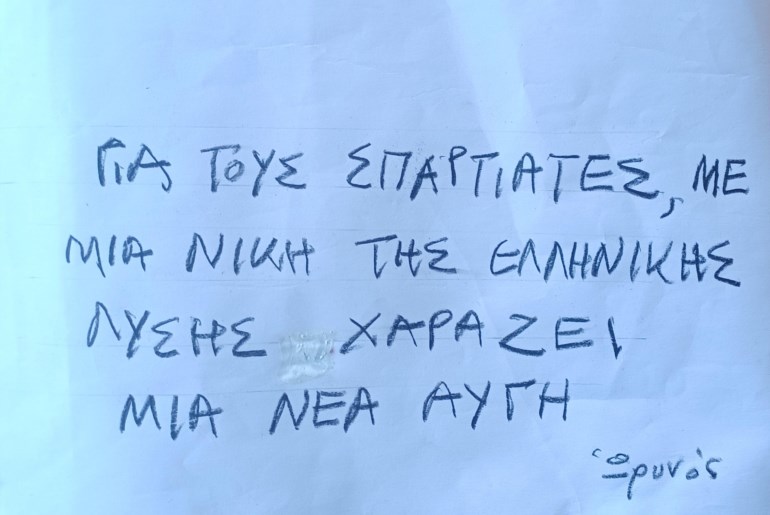 ΓΙΑ ΤΟΥΣ ΣΠΑΡΤΙΑΤΕΣ, ΜΕ
ΜΙΑ ΝΙΚΗ ΤΗΣ ΕΛΛΗΝΙΚΗΣ
ΛΥΣΗΣ ΧΑΡΑΖΕΙ
ΜΙΑ ΝΕΑ ΑΥΓΗ
Ὠρυνός